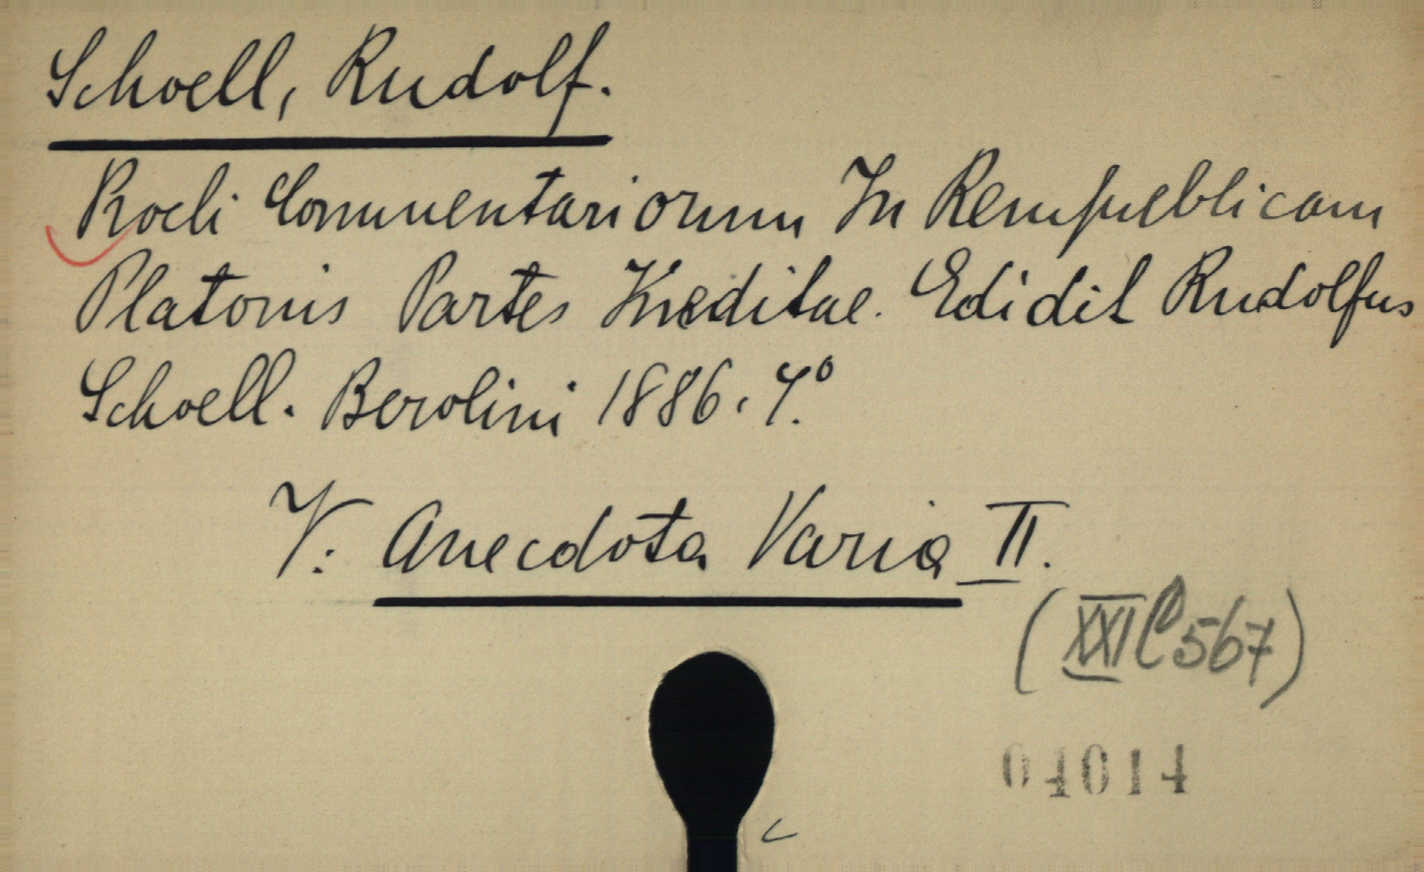 Schoell, Rudolf.
Procli Commentariorum In Rempublicam
Platonis Partes Ineditae. Edidit Rudolfus
Schoell. Berolini 1886. 4.º
V: Anecdota Varia II.
(XXI C 567)
04014